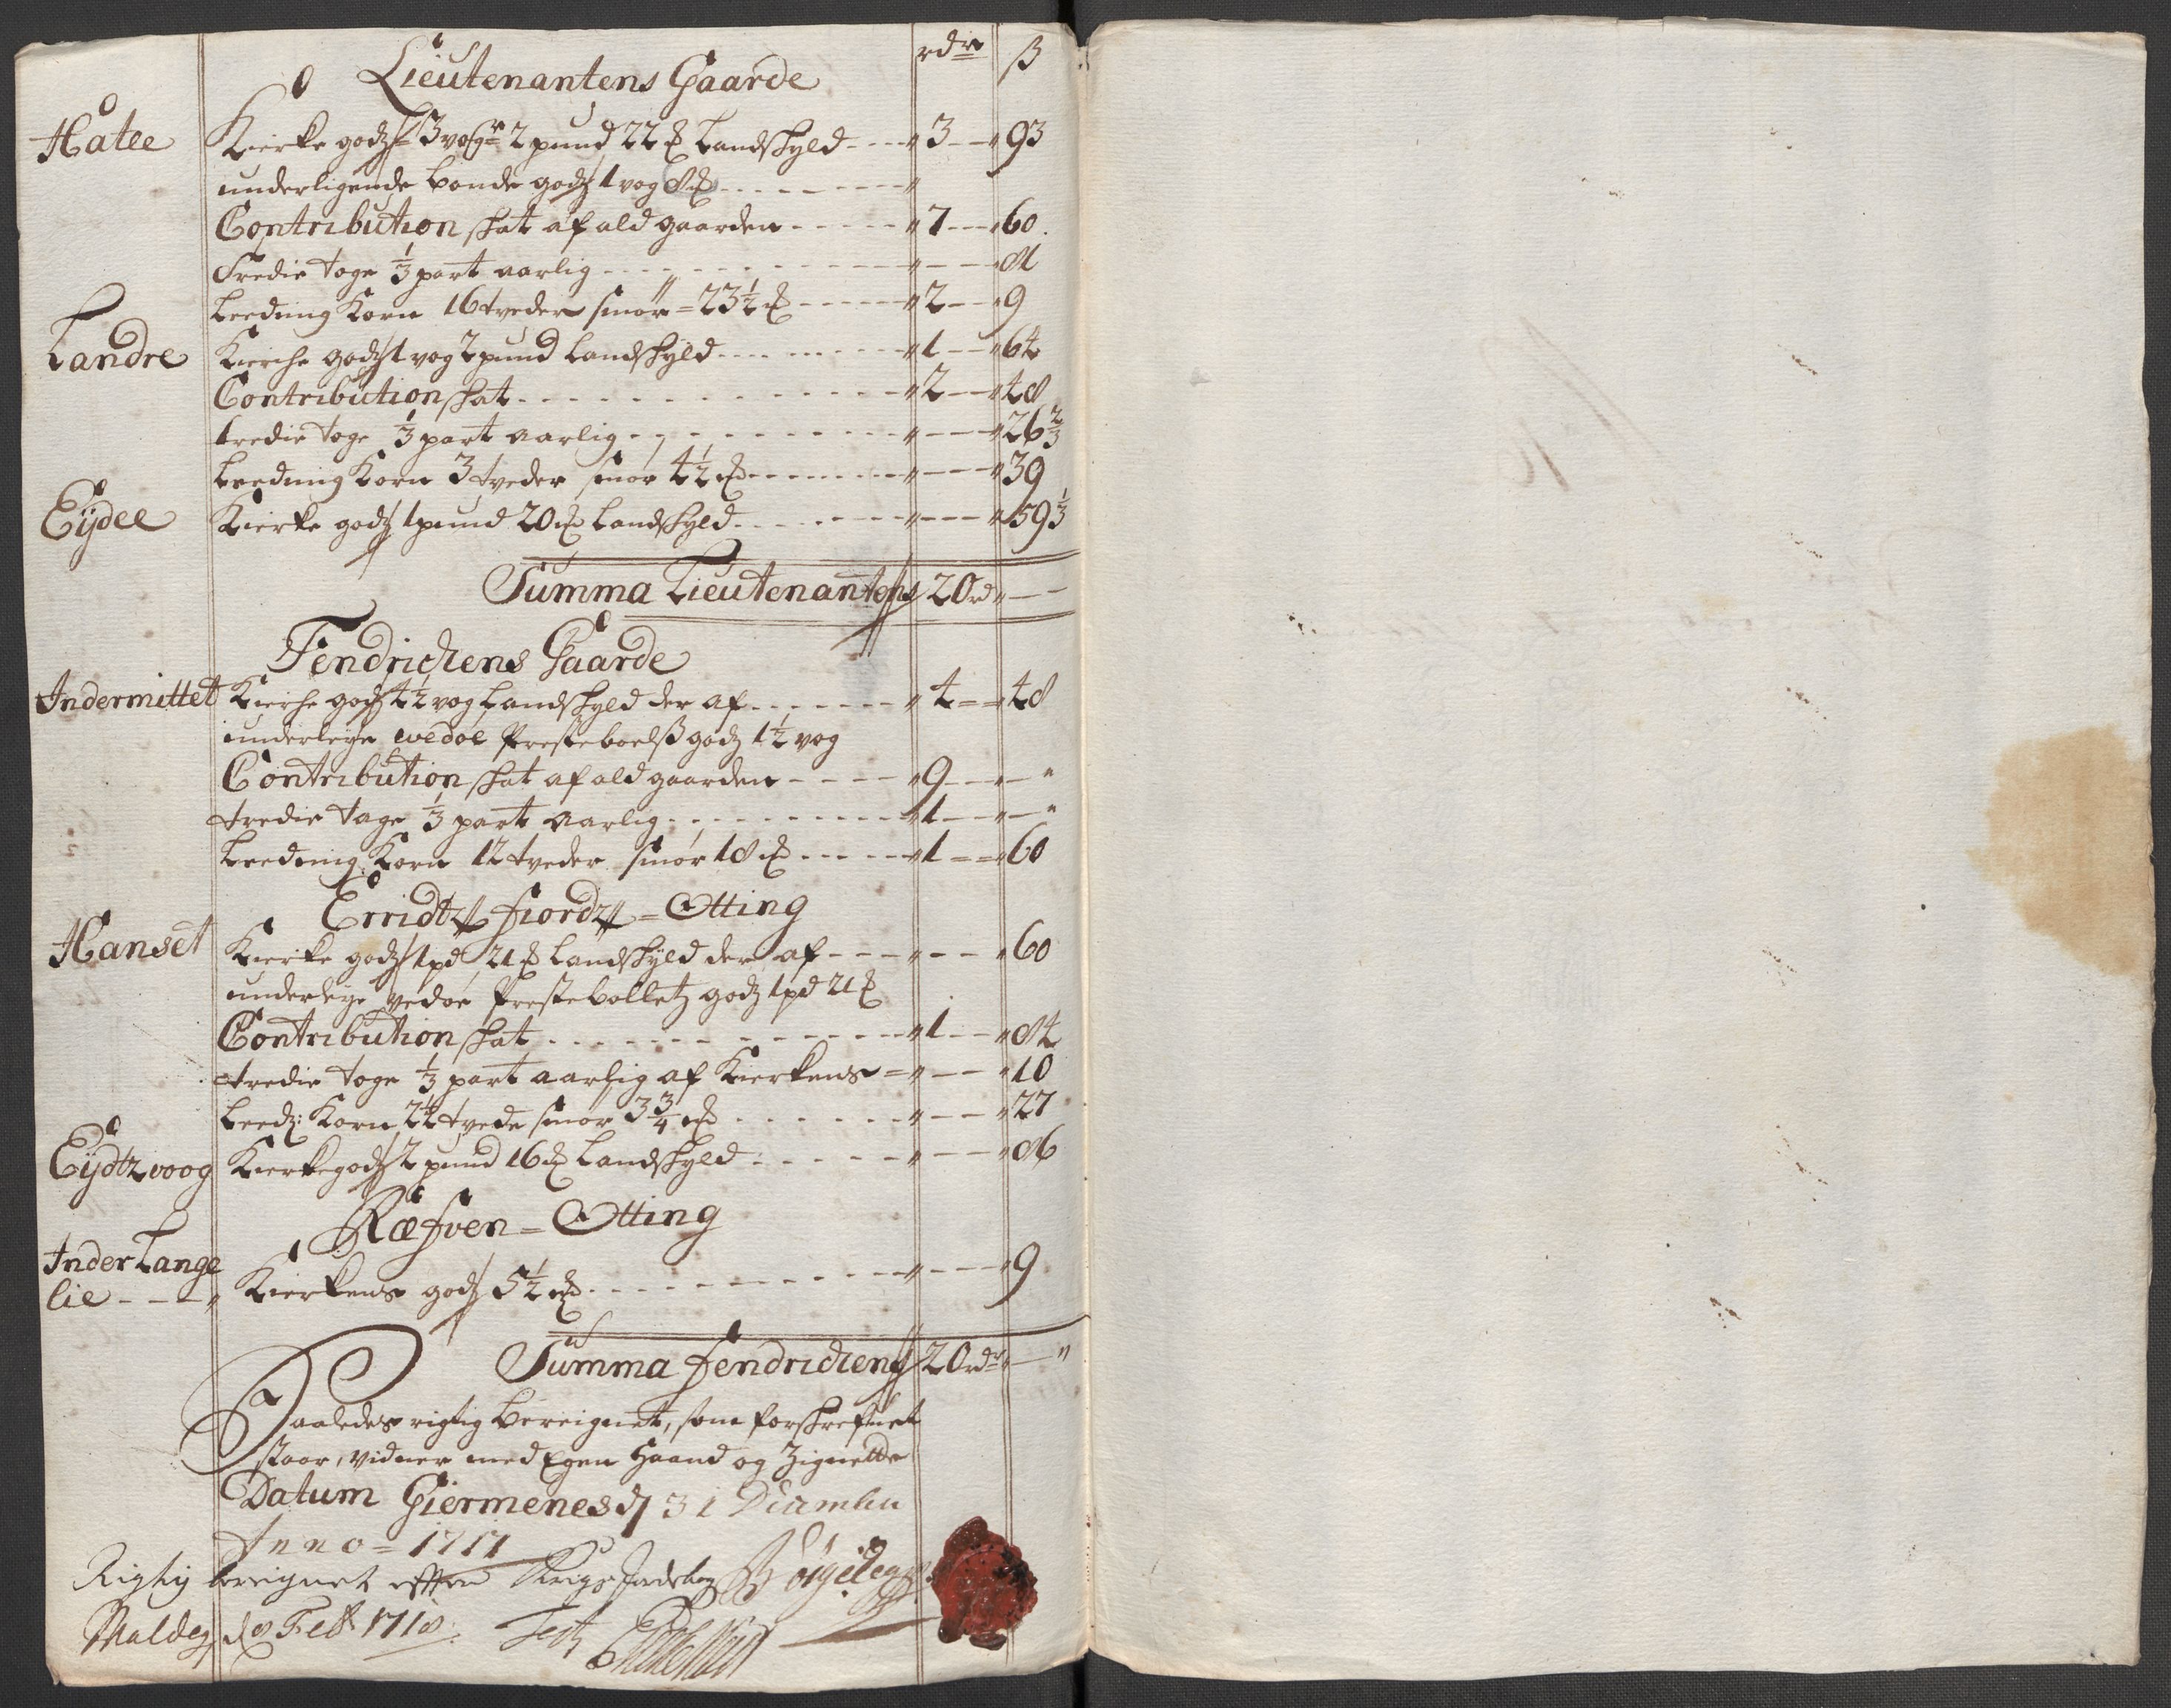 rdr ß
Lieutenantens Gaarde
Hatle Kierke godz 3 vogr 2 pund 22 ℔ Landskyld - - - " 3 - - " 93
underligende bonde godz 1 vog 8 ℔ - - - - - - "
Contribution skat af ald gaarden - - - - - " 7 - - - " 60
tredie toge 1/3 part aarlig - - - - - - " - - - " 81
Leeding Korn 16 tveder smør = 23 1/2 ℔ - - - - - " 2 - - " 9
Landre Kierche godz 1 vog 2 pund Landskyld - - - - - " 1 - - " 64
Contribution skat - - - - - - " 2 - - " 48
tredie toge 1/3 part aarlig - - - - - - " - - - " 26 2/3
Leeding Korn 3 tveder smør 4 1/2 ℔ - - - - - - " - - - " 39
Eÿdee Kierke godz 1 pund 20 ℔ Landskyld - - - - - " - - - " 59 1/3
Summa Lieutenantens 20 rd " - -
Fendrichens Gaarde
Indermittet Kierke godz 4 1/2 vog Landskyld der af - - - - - " 4 = = " 48
underleye wedøe Presteboelß godz 1 1/2 vog
Contribution skat af ald gaarden - - - - " 9 - - " - "
tredie tage 1/3 part aarlig - - - - - - " 1 - - " - "
Leeding Korn 12 tveder smør 18 ℔ - - - - - " 1 = = " 60
Erridtz fiordz = Otting
Hanset Kierke godz 1 pd 21 ℔ Landskyld der af - - - " - - - " 60
underleye vedøe Prestebolletz godz 1 pd 21 ℔
Contribution skat - - - - - - " 1 - - " 84
tredie toge 1/3 part aarlig af Kierkens = " - - - " 10
Leedz: Korn 2 1/2 tvede smør 3 3/4 ℔ - - - - - " - - - " 27
Eÿdtzvoog Kierkegodz 2 pund 16 ℔ Landskyld - - - - - " - - - " 86
Ræfven = Otting
Inder Lange
lie - - - " Kierkens godz 5 1/2 ℔ - - - - - - " - - - " 9
Summa fendrichens 20 rdr " - "
Saaledes rigtig bereignet, som forskrefvet
staar, vidner med Egen Haand og Zignette
Datum Giermenes d 31 December
Anno = 1717
Rigtig bereignet efter Krigs Jordebog
d 8 Feb 1718. Test